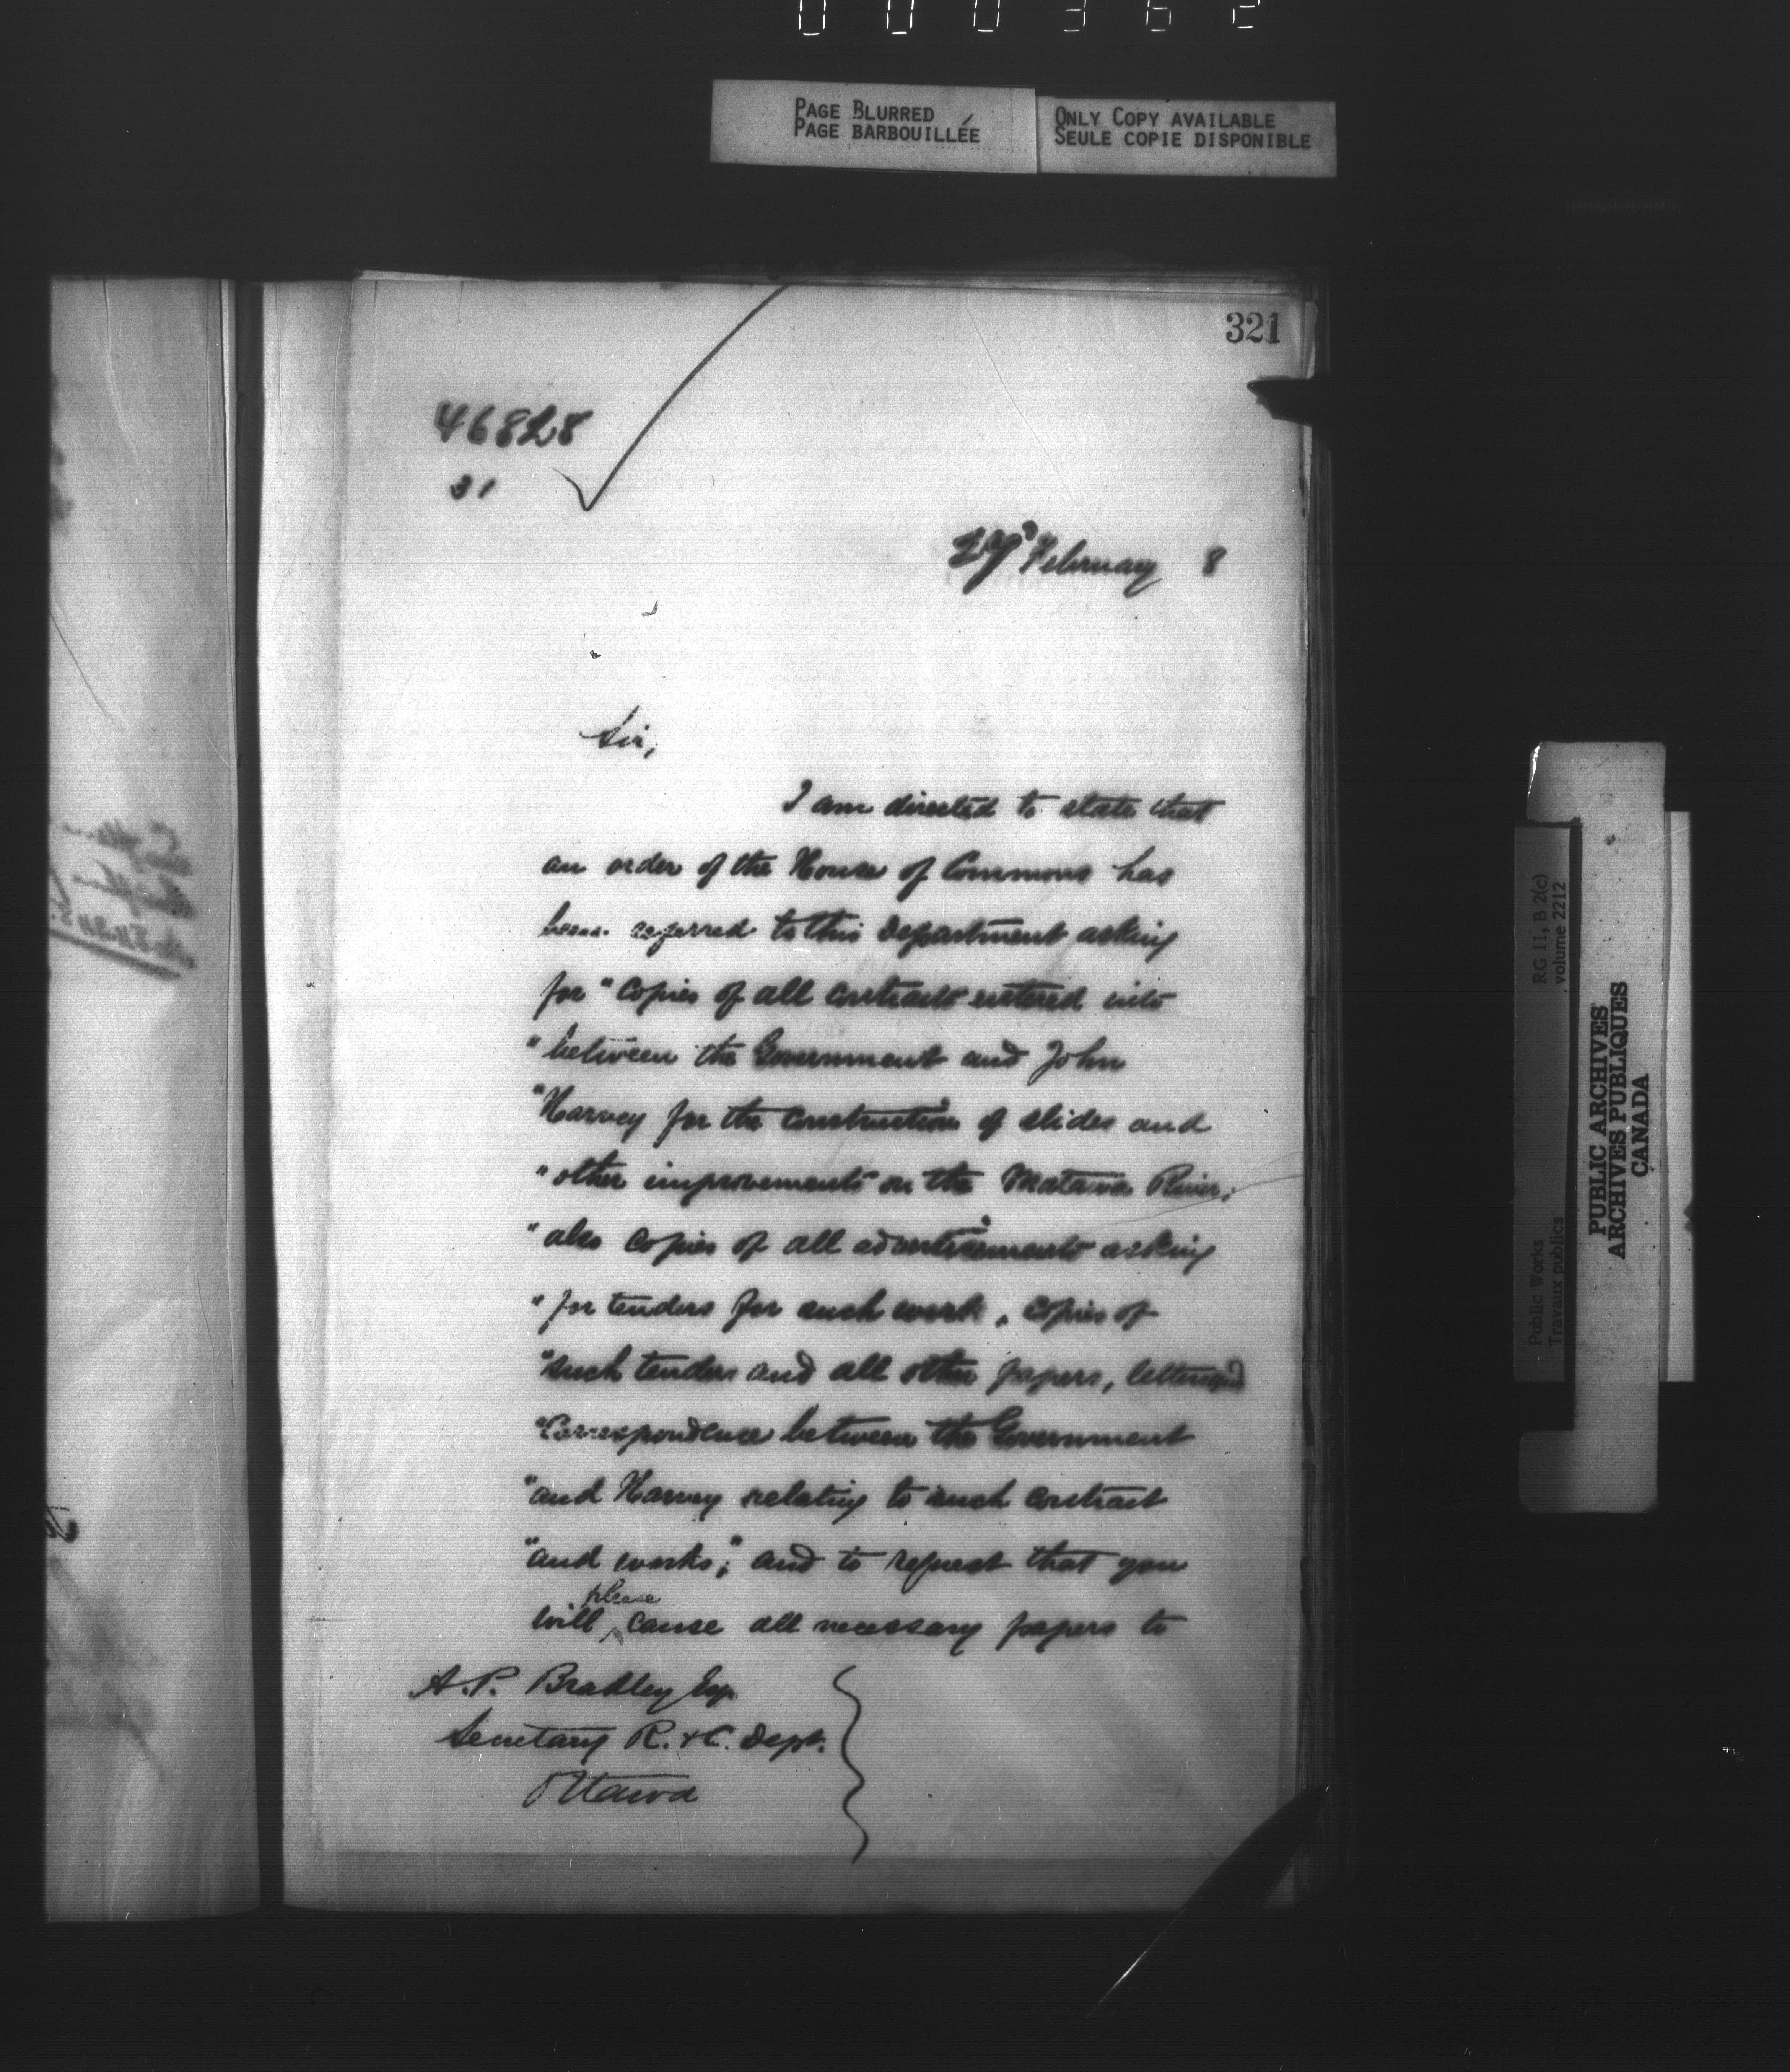 000362
PAGE BLURRED
PAGE BARBOUILLÉE
ONLY COPY AVAILABLE
SEULE COPIE DISPONIBLE
321
46828
31
February 8
Sir,
I am directed to state that
an order of the House of Commons has
been referred to this Department asking
for "Copies of all contracts entered into
"between the Government and John
"Harvey for the construction of slides and
"other improvements on the Matawa River;
"also copies of all advertisements asking
"for tenders for such work, copies of
"such tenders and all other papers, letters and
"Correspondence between the Government
"and Harvey relating to such contract
"and works;" and to request that you
will please cause all necessary papers to
A. P. Bradley Esq.
Secretary R. & C. Dept.
Ottawa
RG 11, B 2(c)
volume 2212
Public Works
Travaux publics
PUBLIC ARCHIVES
ARCHIVES PUBLIQUES
CANADA